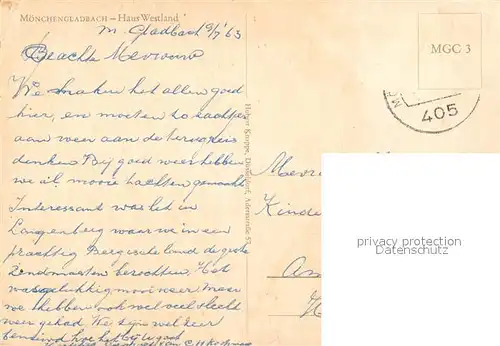 MÖNCHENGLADBACH – Haus Westland
M. Gladbach 9/7 '63
MGC 3
405
Geachte Mevrouw
We maken het allen goed
hier, en moeten zo zachtjes
aan weer aan de terugreis
denken. Bij goed weer hebben
we al mooie tochten gemaakt
Interessant was het in
Langenberg waar we in een
prachtig Bergische land de grote
Zendmasten bezochten. Het
was gelukkig mooi weer. Maar
we hebben ook wel veel slecht
weer gehad. We zijn wel zeer
benieuwd hoe het bij U gaat
Holger Knippe, Düsseldorf, Adersstraße 53
Mevr
Kinde
An
privacy protection
DELCAMPE